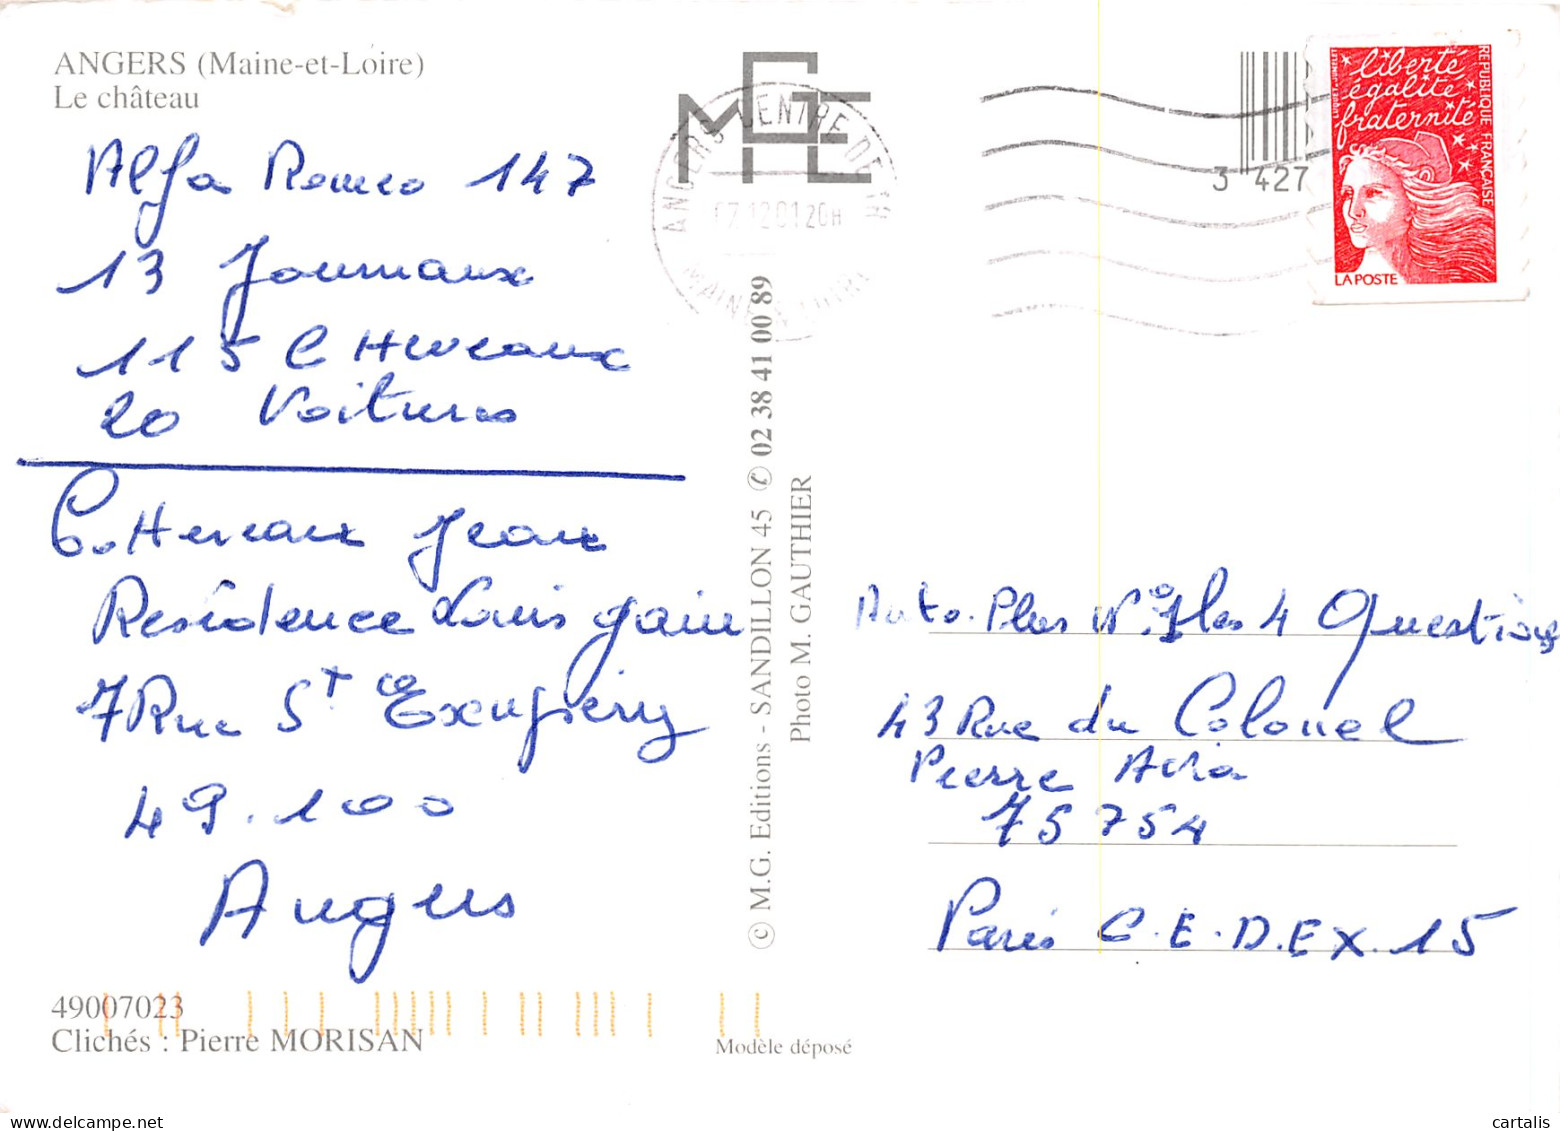 ANGERS (Maine-et-Loire)
Le château
Alfa Romeo 147
13 Journaux
115 CHeveaux
20 Voitures
Jean
Résidence Louis gain
7 Rue St Exupiery
49.100
Angers
49007023
Clichés : Pierre MORISAN
Modèle déposé
© M.G. Editions - SANDILLON 45 ✆ 02 38 41 00 89
Photo M. GAUTHIER
MGE
ANGERS CENTRE DE TRI
12 01 20H
MAINE & LOIRE
3 427
liberté
égalité
fraternité
REPUBLIQUE FRANÇAISE
LA POSTE
Auto-Plus 4 Questions
43 Rue du Colonel
Pierre Avia
75754
Paris C.E.D.EX.15
cartalis